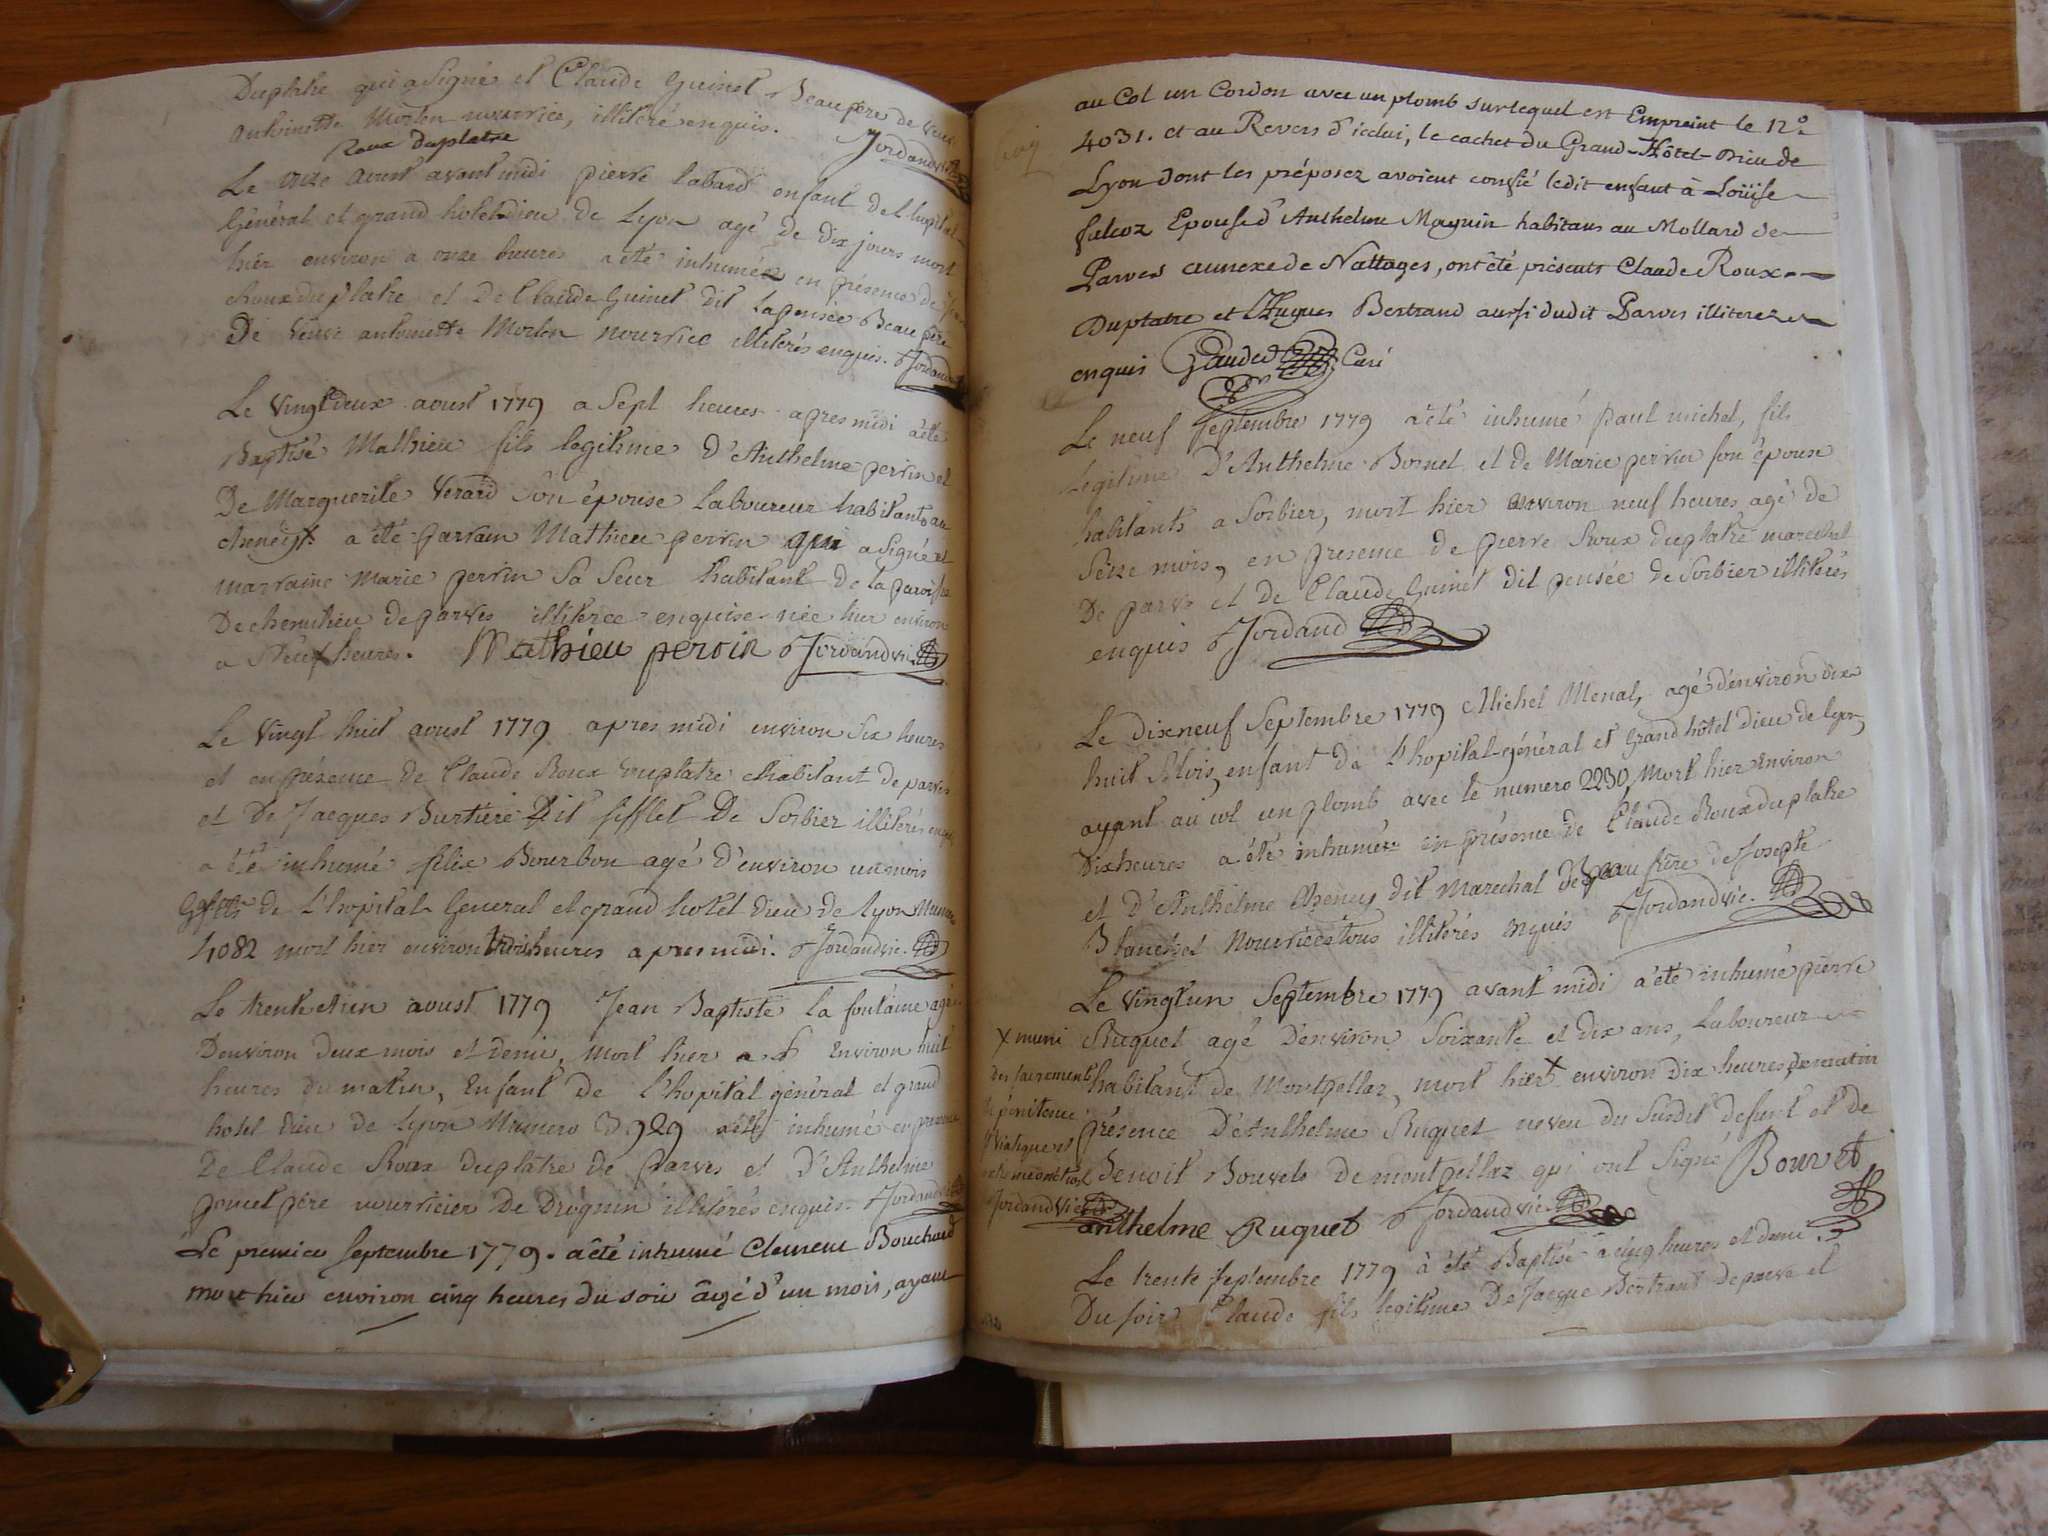 Duplatre qui a signé et Claude Guinet Beaupere de veuve
antoinette Morlon nourrice, illiteré enquis.
Roux Duplatre
Jordand vic.
Le onze aoust avant midi pierre tabard enfant de l'hopital
Général et grand hotel dieu de Lyon agé de dix jours mort
hier environ a onze heures a eté inhumé en présence de
Roux duplatre et de Claude Guinet dit Lapensée Beau père
De veuve antoinette Morlon nourrice illiterés enquis. Jordand
Le vingt deux aoust 1779 a sept heures apres midi a eté
Baptisé Mathieu fils legitime d'Anthelme perrin et
De Marguerite Verard son épouse laboureur habitants au
a eté parrain Mathieu perrin qui a signé et
marraine Marie perrin sa seur habitant de la paroisse
De chemilieu de parves illiteree enquise née hier environ
a neuf heures. Mathieu perrin Jordand vic.
Le vingt huit aoust 1779 apres midi environ six heures
et en présence de Claude Roux Duplatre habitant de parves
et De Jacques Burtiere Dit sifflet De Sorbier illiterés enquis
a eté inhumé felix Bourbon agé d'environ un mois
de L'hopital General et grand hotel dieu de lyon Numero
4082 mort hier environ trois heures apres midi. Jordand vic.
Le trente et un aoust 1779 Jean Baptiste la fontaine agé
D'environ deux mois et demi, mort hier a environ huit
heures du matin, Enfant de l'hopital général et grand
hotel dieu de Lyon Numero 3929 a eté inhumé en presence
De Claude Roux duplatre de Parves et D'Anthelme
poncet père nourricier De Drognin illiterés enquis. Jordand vic.
Le premier septembre 1779. a été inhumé Clement Bouchard
mort hier environ cinq heures du soir âgé d'un mois, ayant
au Col un Cordon avec un plomb sur lequel est Empreint le N°
4031. et au Revers d'icelui, le cachet du Grand-Hôtel-Dieu de
Lyon dont les préposez avoient confié ledit enfant à Loüise
falcoz Epouse d'Anthelme Maguin habitans au Mollard de
Parves annexe de Nattages, ont été présents Claude Roux
Duplatre et Hugues Bertrand aussi dudit Parves illiterez
enquis Curé
Le neuf septembre 1779 a été inhumé paul michel, fils
Légitime D'Anthelme Bornet et de Marie perrin son époux
habitants a Sorbier, mort hier environ neuf heures agé de
Seize mois, en presence de pierre Roux duplatre marechal
De parves et de Claude Guinet dit pensée de Sorbier illiterés
enquis Jordand
Le dixneuf Septembre 1779 Michel Menal, agé d'environ dix
huit Mois, enfant de L'hopital général et grand hôtel dieu de lyon,
ayant au col un plomb avec le numero 2230 Mort hier Environ
Dix heures a été inhumé en présence de Claude Roux duplatre
et D'Anthelme Chenus dit Marechal de Beau frère de Josepte
Blanchet Nourrice tous illiterés enquis Jordand vic.
Le vingt un Septembre 1779 avant midi a été inhumé pierre
Ruquet agé D'environ Soixante et dix ans, Laboureur
habitant de Montpellaz, mort hier X environ dix heures de matin
présence D'Anthelme Ruquet neveu du susdit defunt et de
Benoit Bouvet de montpellaz qui ont signé Bouvet
anthelme Ruquet Jordand vic.
X muni
des sacrements
de pénitence
viatique et
extreme onction
Jordand vic.
Le trente septembre 1779 à été Baptisé à cinq heures et demi
Du soir Claude fils legitime De Jacque Bertrand De parve et